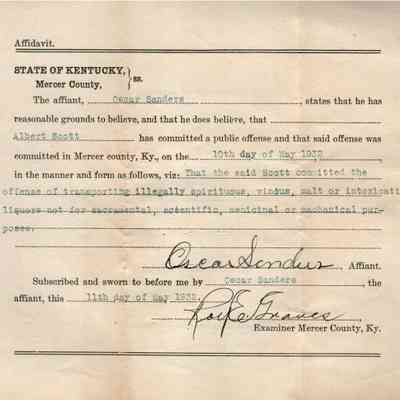 Affidavit.
STATE OF KENTUCKY, } ss.
Mercer County,
The affiant, Oscar Sanders, states that he has
reasonable grounds to believe, and that he does believe, that
Albert Scott has committed a public offense and that said offense was
committed in Mercer county, Ky., on the 10th day of May 1932,
in the manner and form as follows, viz: That the said Scott comitted the
offense of transporting illegally spirituous, vinous, malt or intoxicati
liquors not for sacramental, scientific, medicinal or mechanical pur-
poses.
Oscar Sanders, Affiant.
Subscribed and sworn to before me by Oscar Sanders, the
affiant, this 11th day of May 1932.
Roy E Graves
Examiner Mercer County, Ky.